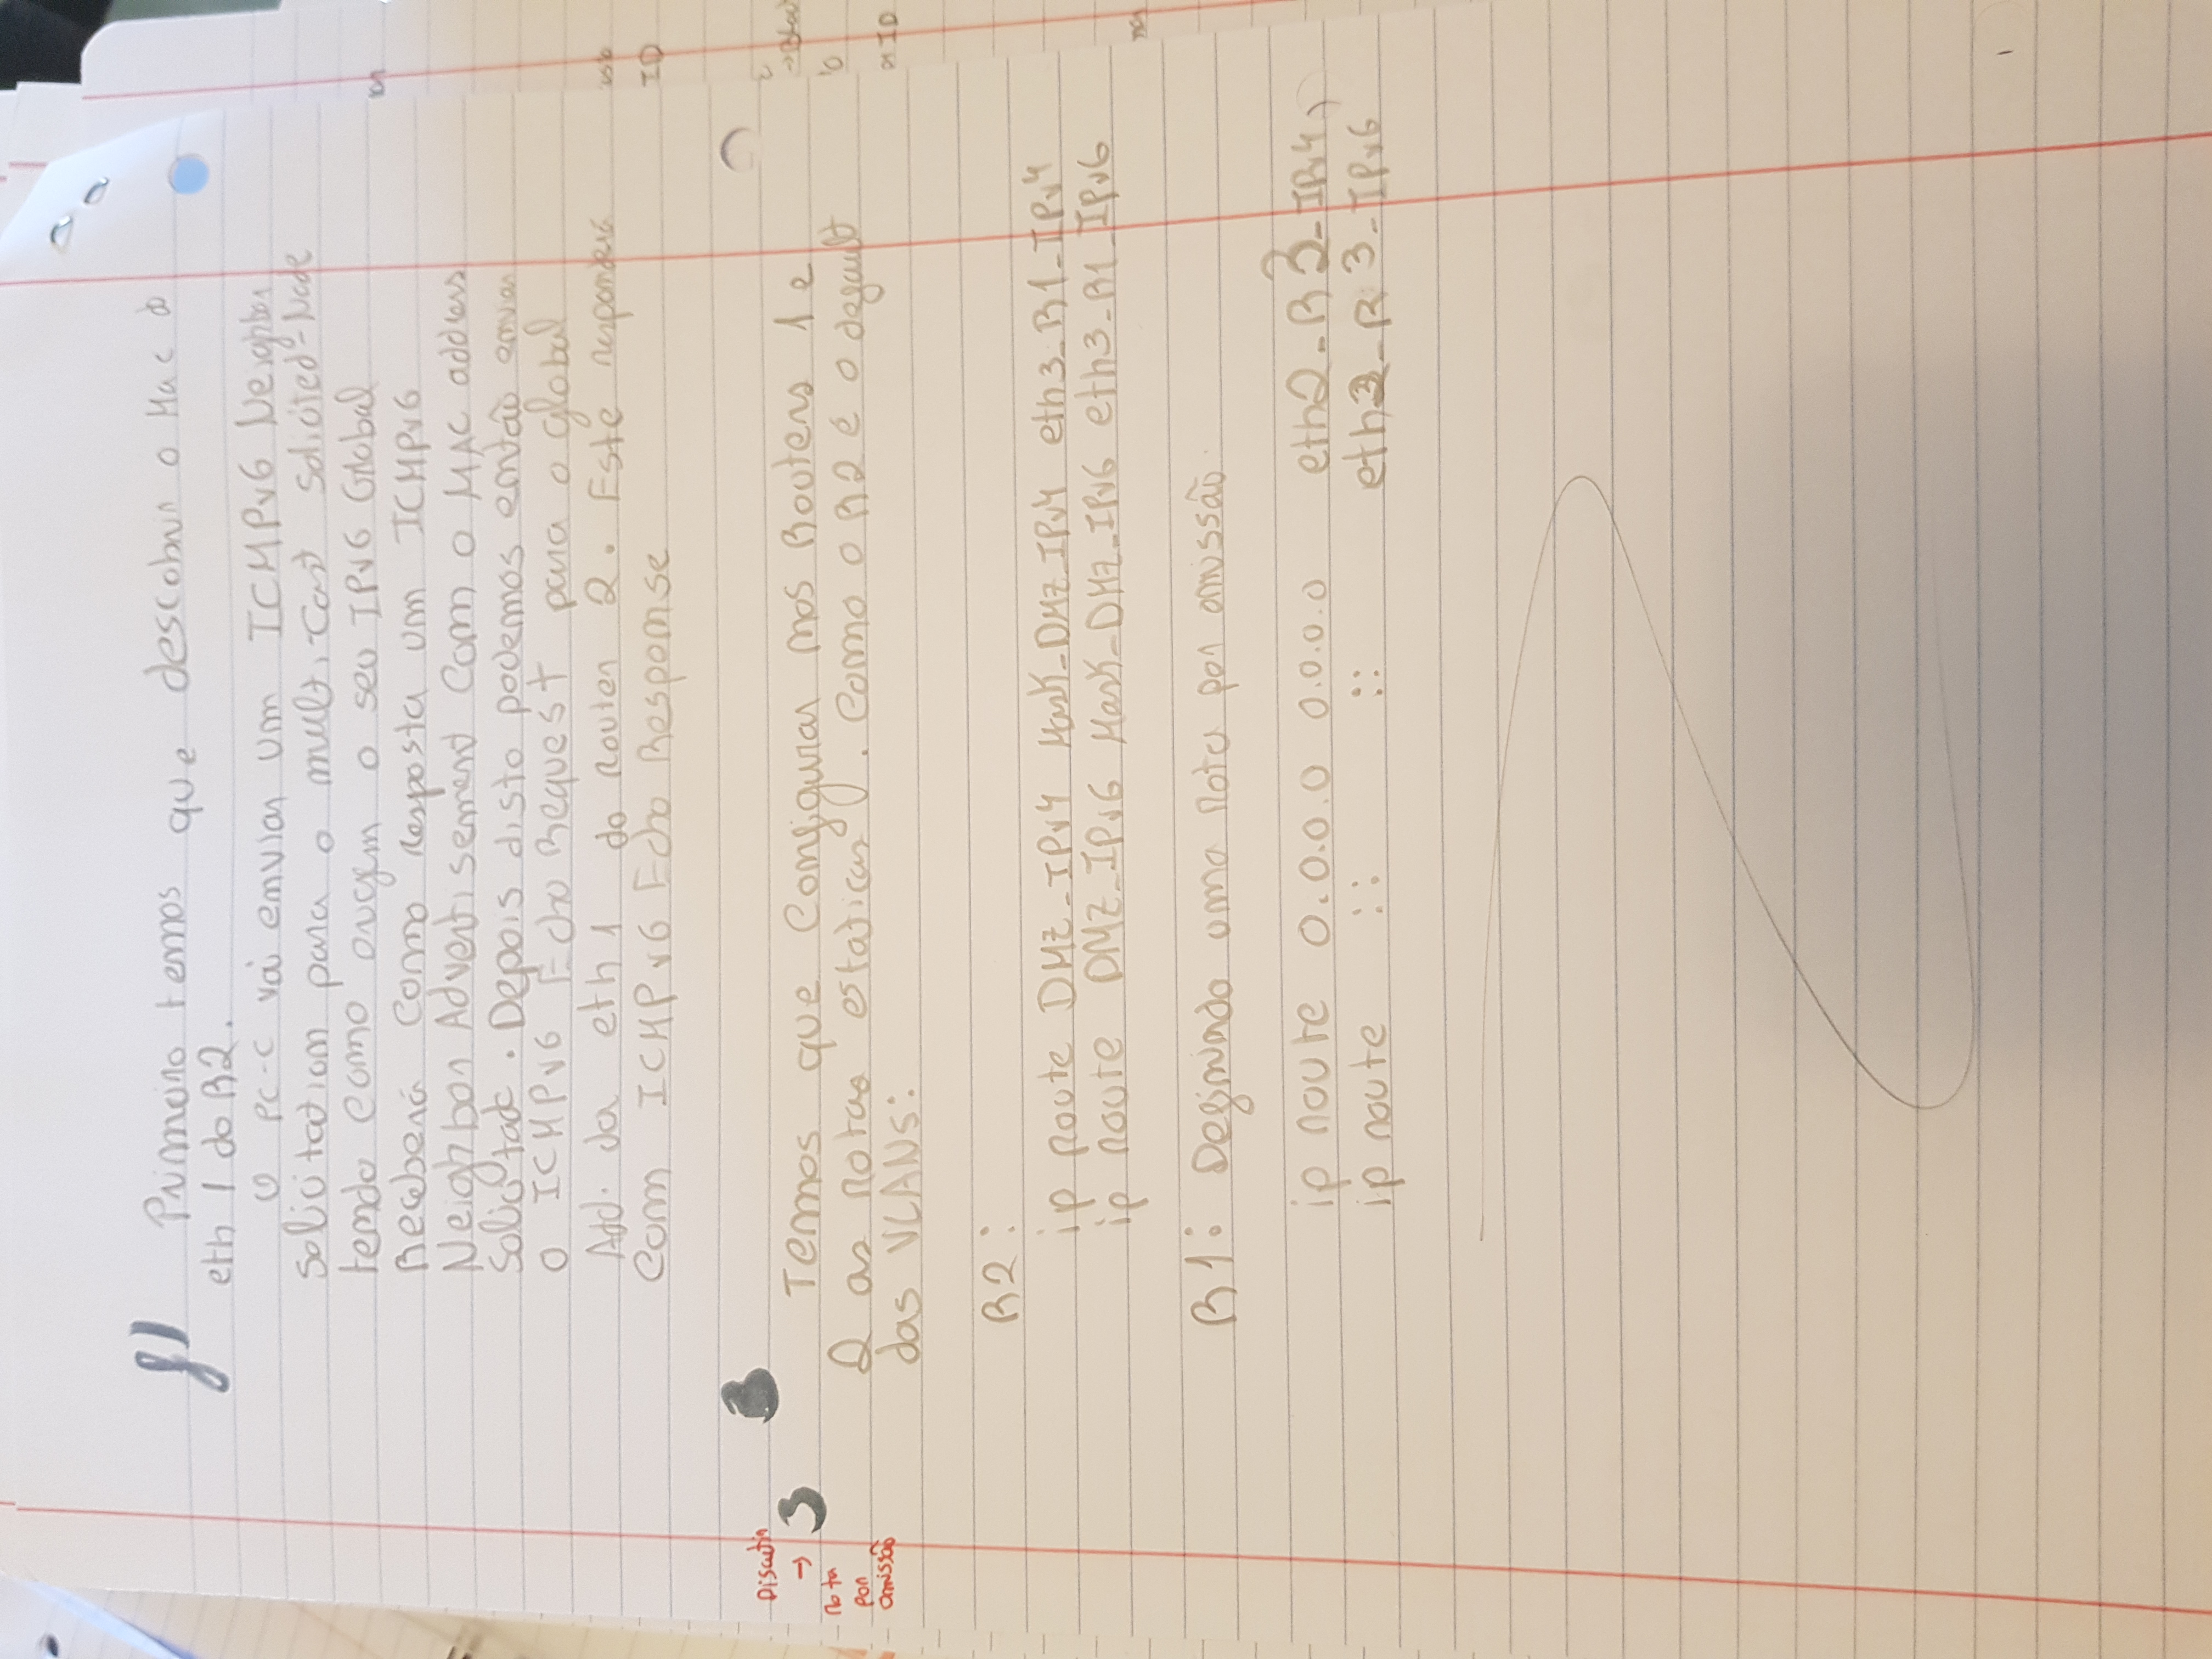 f) Primeiro temos que descobrir o Mac do
eth 1 do R2.
O PC-C vai enviar um ICMPv6 Neighbor
Solicitation para o multi-cast Solicited-Node
tendo como origem o seu IPv6 Global
Receberá como resposta um ICMPv6
Neighbor Advertisement com o MAC address
solicitado. Depois disto podemos então enviar
o ICMPv6 Echo Request para o global
Add. da eth1 do Router 2. Este responderá
com ICMPv6 Echo Response
3
Discutir
→
rota
por
omissão
3 Temos que configurar nos Routers 1 e
2 as rotas estaticas. Como o R2 é o default
das VLANs:
R2:
ip route DMZ_IPv4 Mask_DMZ_IPv4 eth3_R1_IPv4
ip route DMZ_IPv6 Mask_DMZ_IPv6 eth3_R1_IPv6
R1: Definindo uma rota por omissão.
ip route 0.0.0.0 0.0.0.0 eth2_R3_IPv4
ip route :: :: eth2_R3_IPv6
ID
ID